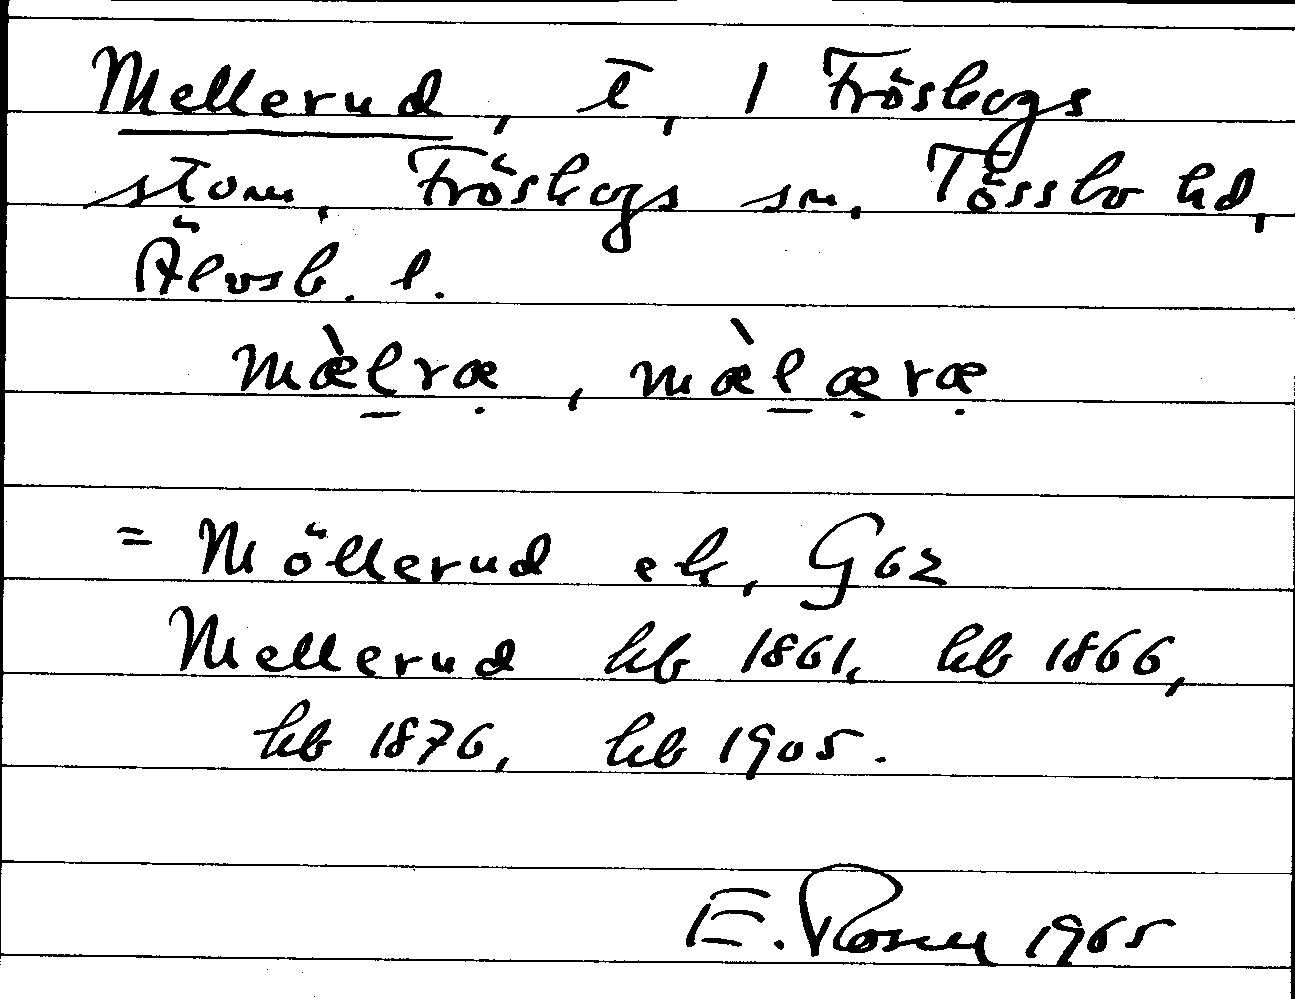 Mellerud, t, 1 Fröskogs
stom, Fröskogs sn, Tössbo hd,
Älvsb. l.
mæ̀l̠ræ̣, mæ̀l̠æ̣ræ̣
= Möllerud ek, G62
Mellerud hb 1861, hb 1866,
hb 1876, hb 1905.
E. Rosell 1965